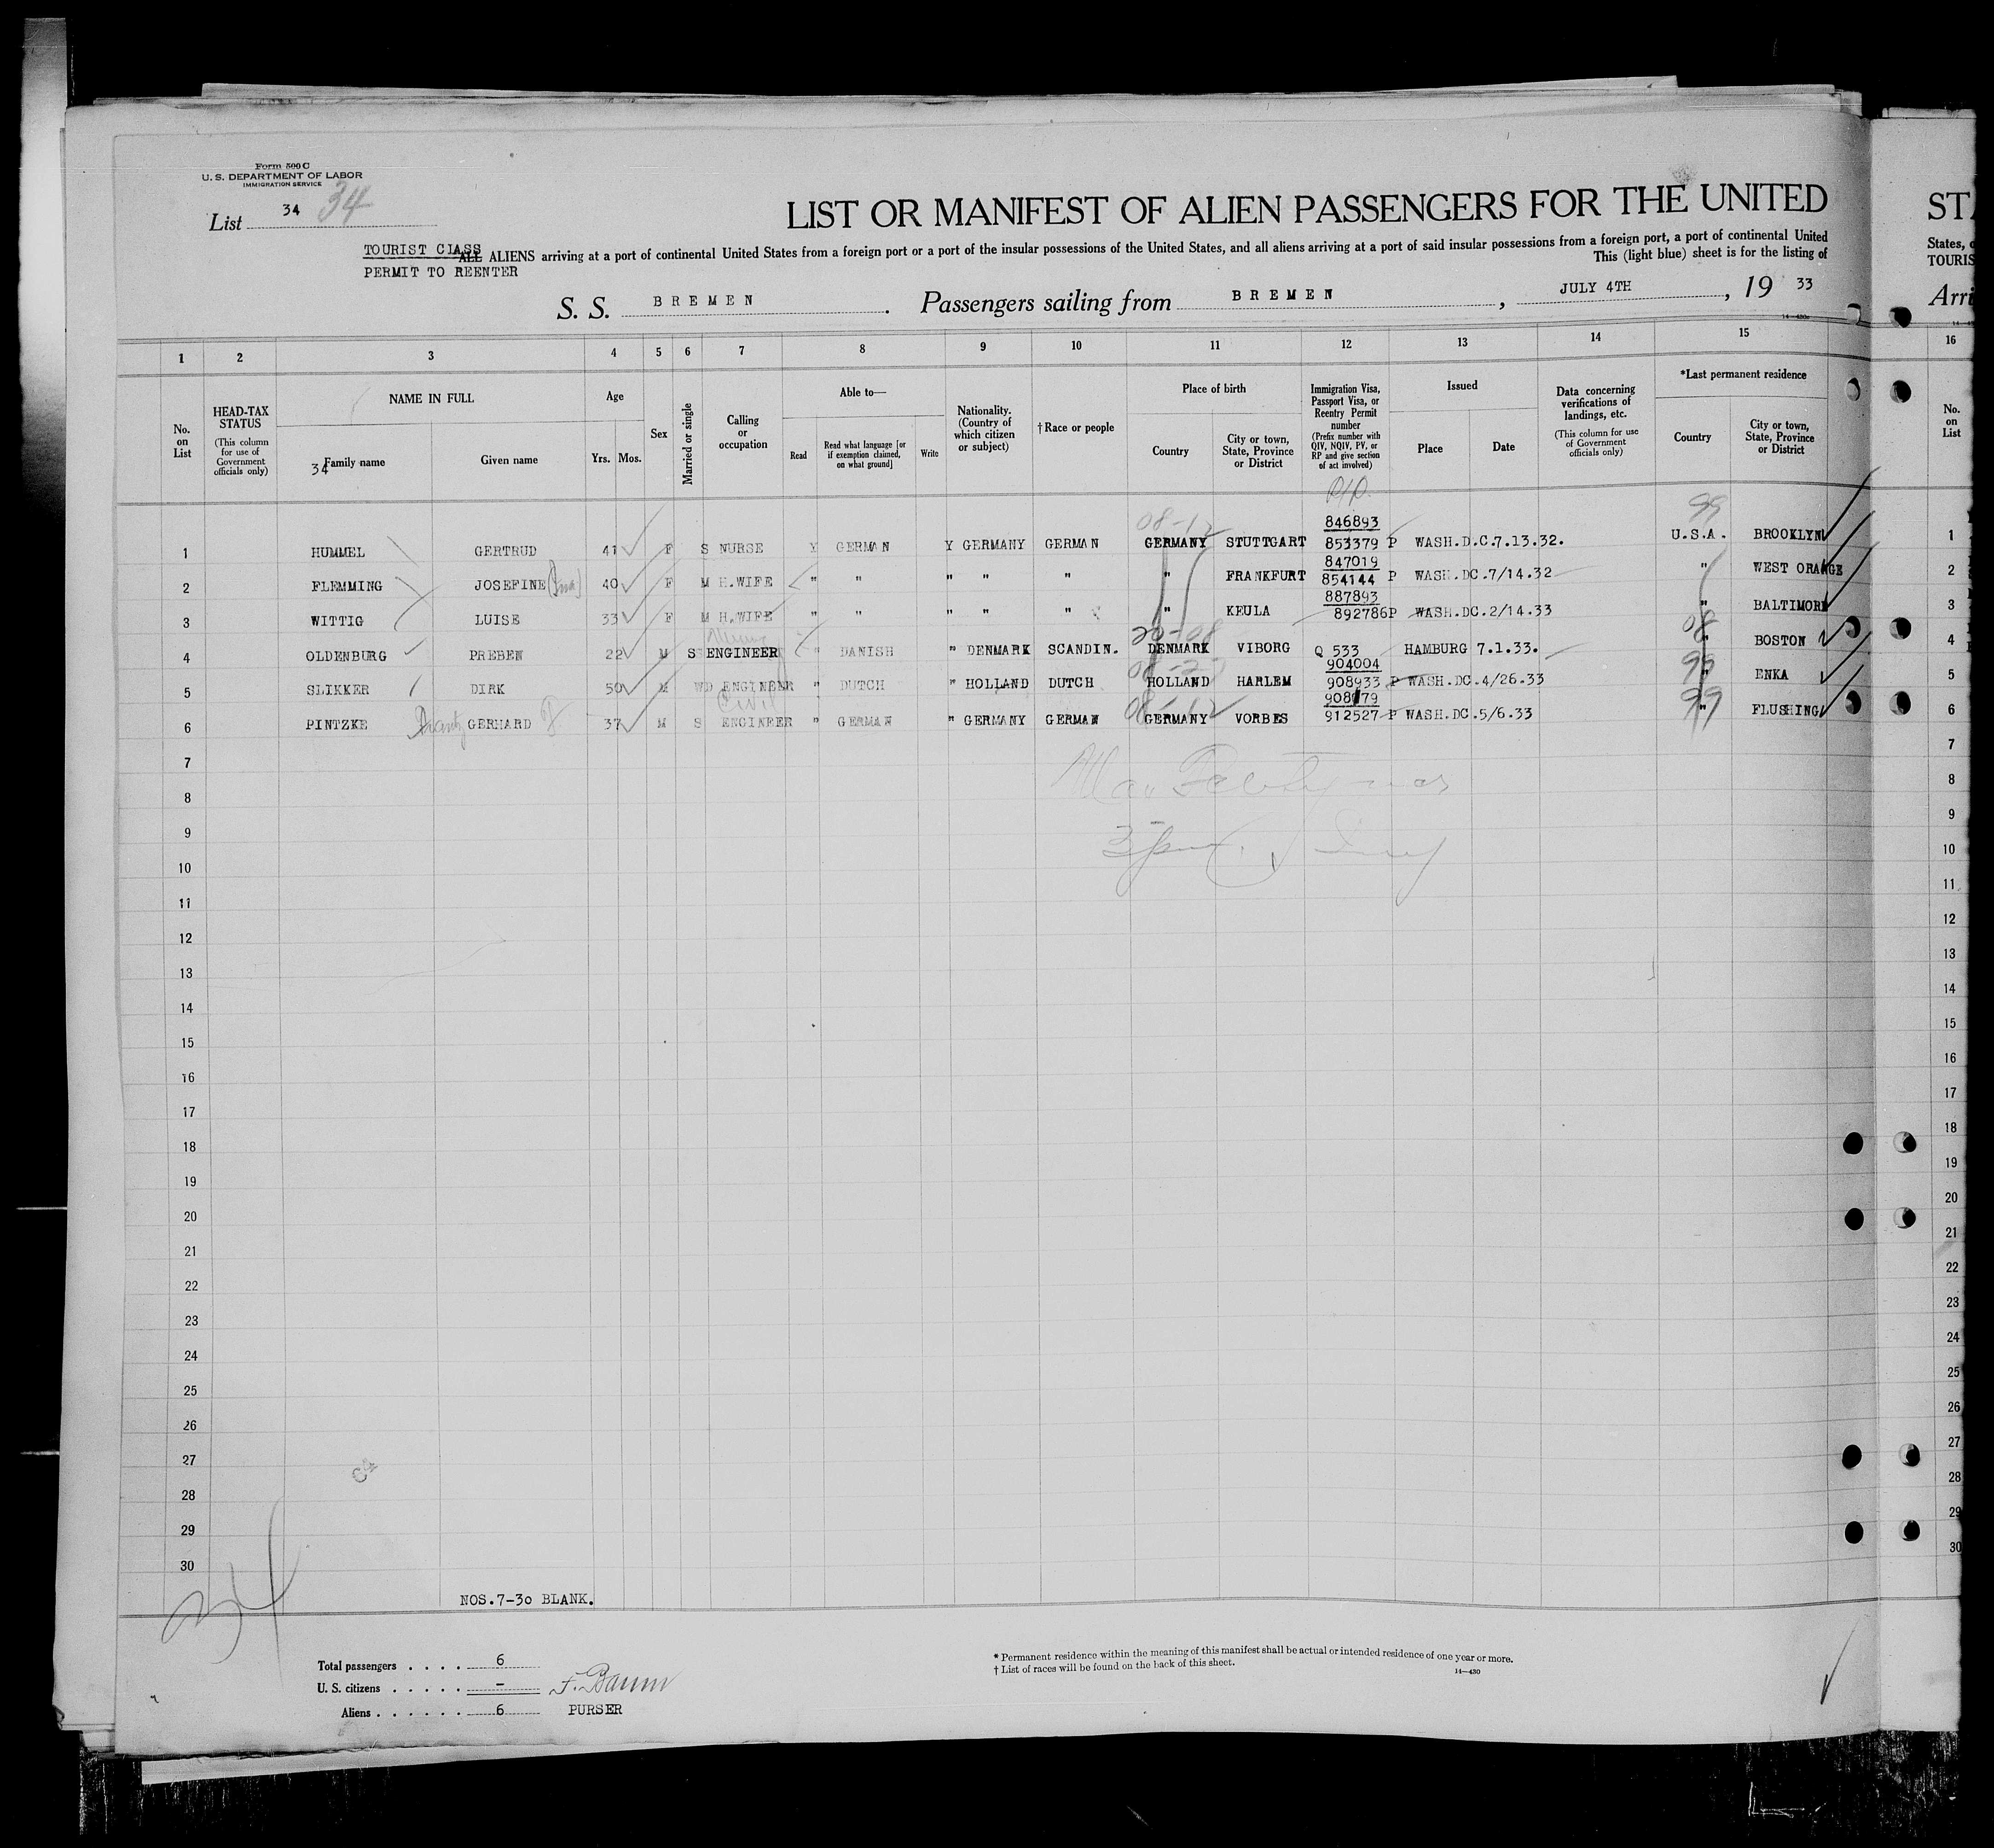 Form 500 C
U. S. DEPARTMENT OF LABOR
IMMIGRATION SERVICE
List 34 34
LIST OR MANIFEST OF ALIEN PASSENGERS FOR THE UNITED
TOURIST CLASS
ALL ALIENS arriving at a port of continental United States from a foreign port or a port of the insular possessions of the United States, and all aliens arriving at a port of said insular possessions from a foreign port, a port of continental United
PERMIT TO REENTER
This (light blue) sheet is for the listing of
S. S. BREMEN. Passengers sailing from BREMEN, JULY 4TH, 19 33
1 2 3 4 5 6 7 8 9 10 11 12 13 14 15
No. on List
HEAD-TAX STATUS (This column for use of Government officials only)
NAME IN FULL
34 Family name
Given name
Age
Yrs. Mos.
Sex
Married or single
Calling or occupation
Able to—
Read
Read what language [or if exemption claimed, on what ground]
Write
Nationality. (Country of which citizen or subject)
† Race or people
Place of birth
Country
City or town, State, Province or District
Immigration Visa, Passport Visa, or Reentry Permit number (Prefix number with QIV, NQIV, PV, or RP and give section of act involved)
Issued
Place
Date
Data concerning verifications of landings, etc. (This column for use of Government officials only)
*Last permanent residence
Country
City or town, State, Province or District
08-12 99
846893
1 HUMMEL GERTRUD 41 F S NURSE Y GERMAN Y GERMANY GERMAN GERMANY STUTTGART 853379 P WASH.D.C.7.13.32. U.S.A. BROOKLYN
847019
2 FLEMMING JOSEFINE 40 F M H.WIFE " " " " " " FRANKFURT 854144 P WASH.DC.7/14.32 " WEST ORANGE
887893
3 WITTIG LUISE 33 F M H.WIFE " " " " " " KEULA 892786P WASH.DC.2/14.33 " BALTIMORE
20-08 08
4 OLDENBURG PREBEN 22 M S ENGINEER " DANISH " DENMARK SCANDIN. DENMARK VIBORG Q 533 HAMBURG 7.1.33. " BOSTON
904004 99
5 SLIKKER DIRK 50 M WD ENGINEER " DUTCH " HOLLAND DUTCH HOLLAND HARLEM 908933 P WASH.DC.4/26.33 " ENKA
Civil 08-12 908179 99
6 PINTZKE GERHARD 37 M S ENGINEER " GERMAN " GERMANY GERMAN GERMANY VORBES 912527 P WASH.DC.5/6.33 " FLUSHING
7
8
9
10
11
12
13
14
15
16
17
18
19
20
21
22
23
24
25
26
27
28
29
30
NOS.7-30 BLANK.
34
Total passengers . . . . 6
U. S. citizens . . . . . —
Aliens . . . . . . 6
F. Baum
PURSER
* Permanent residence within the meaning of this manifest shall be actual or intended residence of one year or more.
† List of races will be found on the back of this sheet.
14—430
States,
TOURIS
Arri
16
No. on List
1
2
3
4
5
6
7
8
9
10
11
12
13
14
15
16
17
18
19
20
21
22
23
24
25
26
27
28
29
30